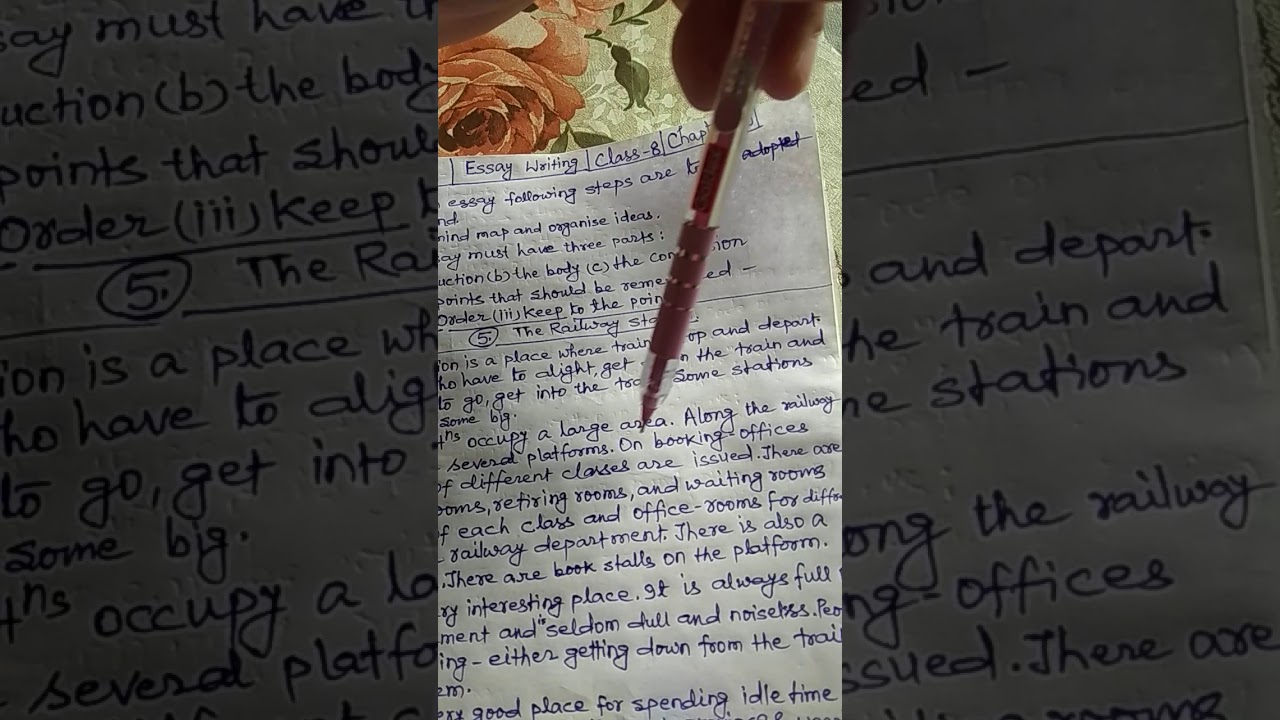 Essay Writing | Class-8 | Chap
essay following steps are to adopted
nd.
mind map and organise ideas.
ay must have three parts:
uction (b) the body (c) the con sion
points that should be reme ed -
Order (iii) Keep to the poin
5. The Railway Sta
ion is a place where train op and depart.
ho have to alight, get n the train and
to go, get into the tra Some stations
some big.
tns occupy a large area. Along the railway
several platforms. On booking-offices
of different classes are issued. There are
ooms, retiring rooms, and waiting rooms
of each class and office-rooms for diffe
railway department. There is also a
. There are book stalls on the platform.
ry interesting place. It is always full
ment and is seldom dull and noiseless. Peo
ing - either getting down from the trai
em.
ery good place for spending idle time